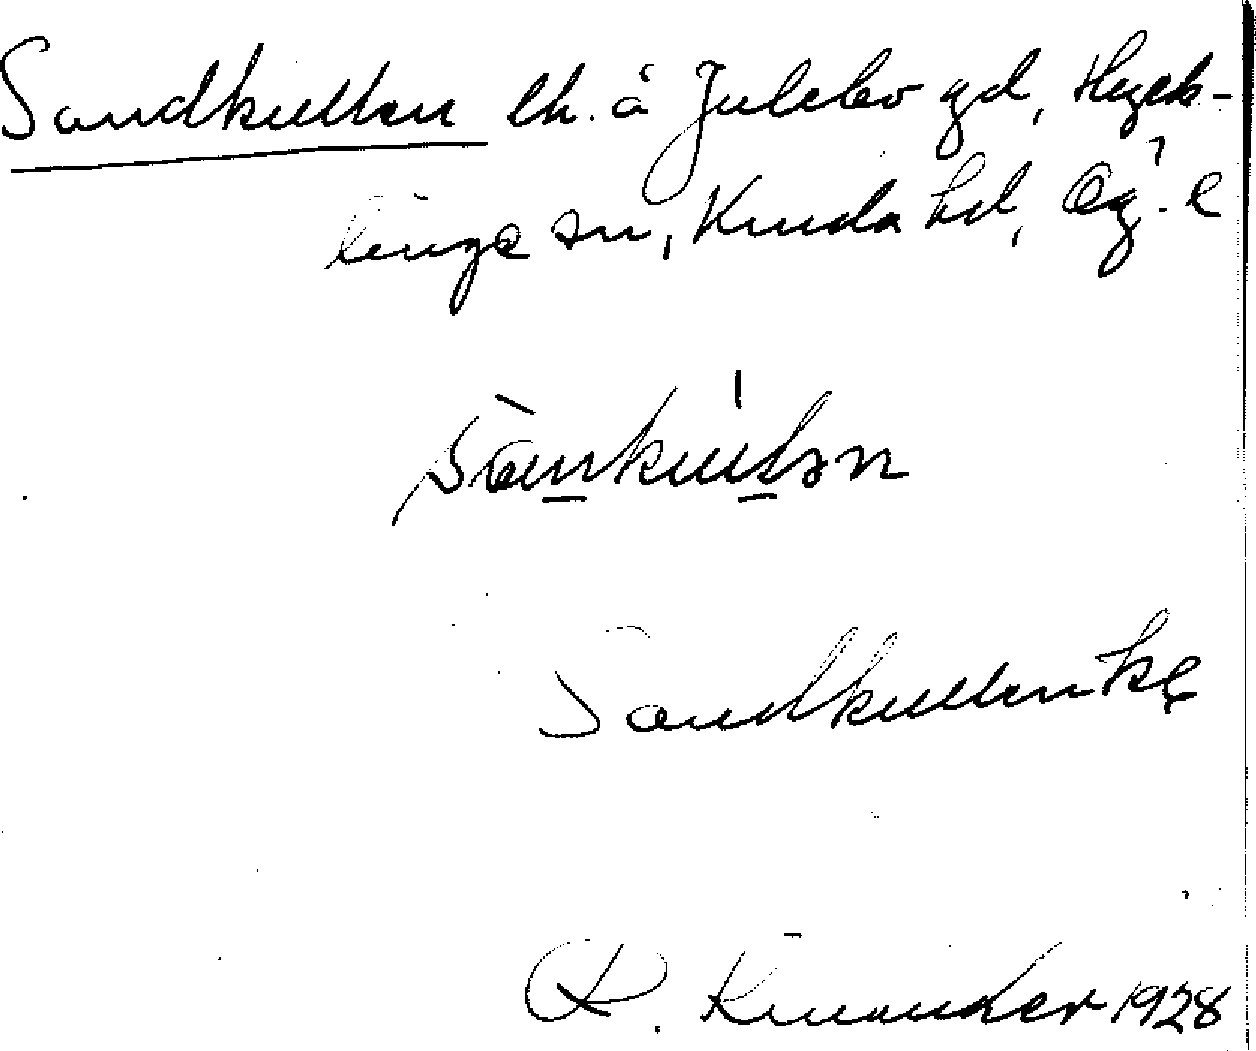 Sandkullen lh. å Julebo gd, Hyck-
linge sn, Kinda hd, Ög. l
Sandkullen kg
K. Kinander 1928